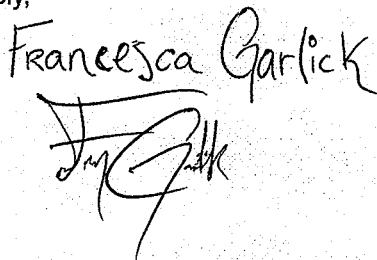 Francesca Garlick